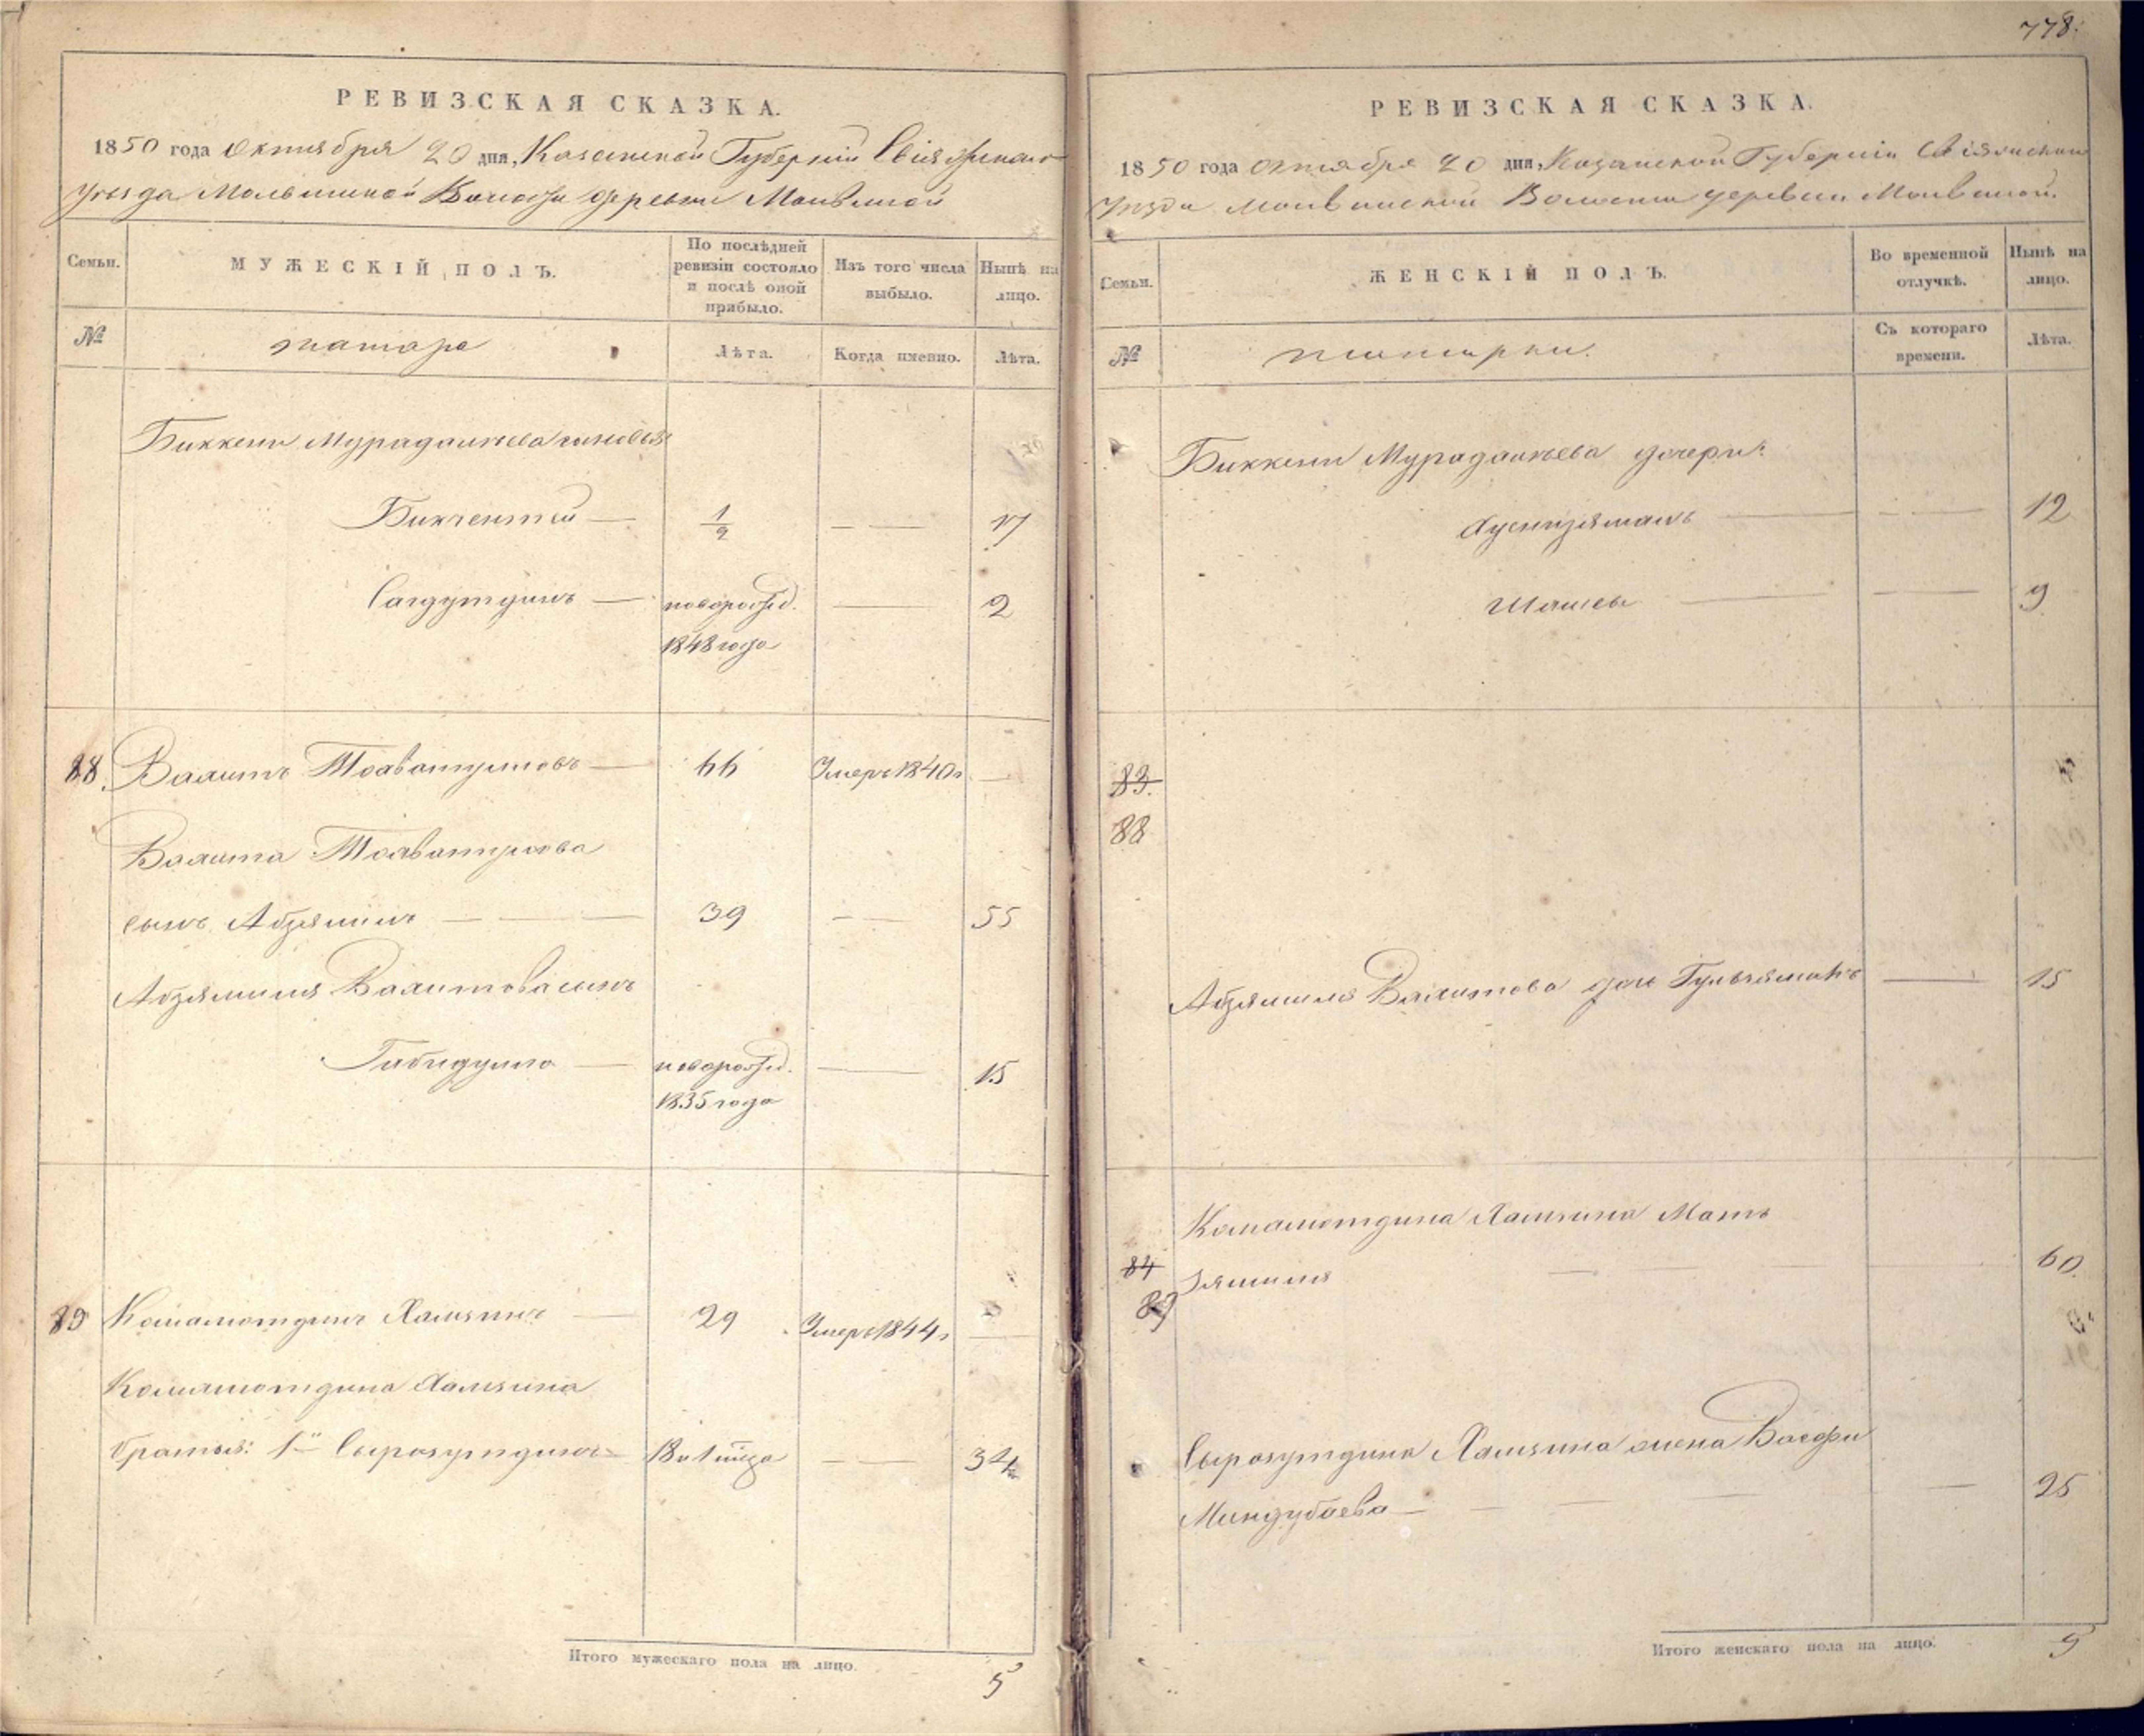 778.
РЕВИЗСКАЯ СКАЗКА.
1850 года Октября 20 дня, Казанской Губернии Свіяжскаго
уезда Молвинской Волости деревни Молвиной
Семьи.
МУЖЕСКІЙ ПОЛЪ.
По послѣдней ревизіи состояло и послѣ оной прибыло.
Изъ того числа выбыло.
Нынѣ на лицо.
№
татаре
Лѣта.
Когда именно.
Лѣта.
Биккени Мурадалиева сыновья
Бикчентей — 1/2 — — 17
Сагдутдинъ — новорожд. — 2
1848 года
88. Валитъ — 66 Умеръ 1840 г —
Валита
сынъ Абзялилъ — — 39 — — 55
Абзялиля Валитова сынъ
Габидулла — новорожд. — 15
1835 года
89 Камалютдинъ Хамзинъ — 29 Умеръ 1844 г —
Камалютдина Хамзина
братья: 1й Сыразутдинъ — 34
Итого мужескаго пола на лицо. 5
РЕВИЗСКАЯ СКАЗКА.
1850 года октября 20 дня, Казанской Губерніи Свіяжскаго
Уезда Молвинской Волости деревни Молвиной.
Семьи.
ЖЕНСКІЙ ПОЛЪ.
Во временной отлучкѣ.
Нынѣ на лицо.
№
татарки.
Съ котораго времени.
Лѣта.
Биккени Мурадалиева дочери:
Хуснизямалъ — — — 12
— — — 9
83.
88
Абзялиля Валитова дочь — 15
Камалютдина Хамзина Мать
84 Зялиля — — 60.
89
Сыразутдина Хамзина жена Васфи
Миндубаева — — — 25
Итого женскаго пола на лицо. 5